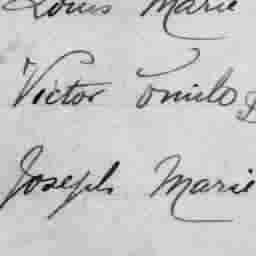 Louis Marie
Victor Omilo
Joseph Marie